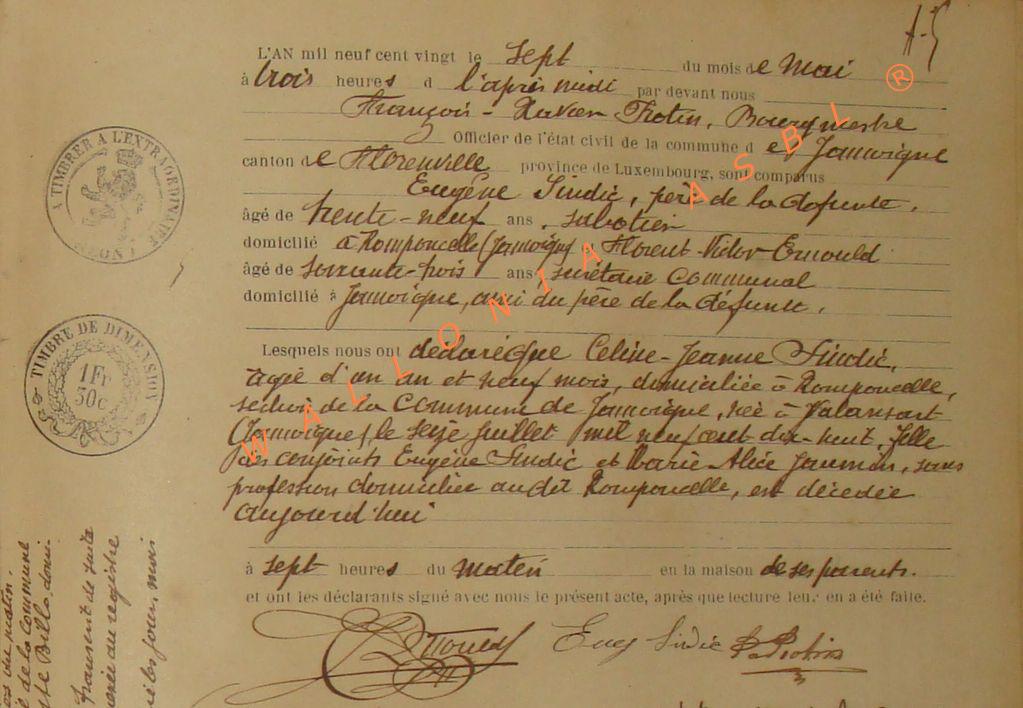 L'AN mil neuf cent vingt le sept du mois de Mai
à trois heures d l'après midi par devant nous
François-Xavier Protin, Bourgmestre
Officier de l'état civil de la commune d e Jamoigne
canton de Florenville province de Luxembourg, sont comparus
Eugène Sindic, père de la défunte,
âgé de trente-neuf ans, sabotier
domicilié à Romponcelle (Jamoigne) et Florent-Victor Ernould
âgé de soixante-trois ans secrétaire communal
domicilié à Jamoigne, ami du père de la défunte.
Lesquels nous ont déclaré que Celine-Jeanne Sindic,
agée d'un an et neuf mois, domiciliée à Romponcelle,
section de la commune de Jamoigne, née à Valansart
(Jamoigne) le seize juillet mil neuf cent dix-huit, fille
des conjoints Eugène Sindic et Marie Alice Jaumin, sans
profession domiciliée au dit Romponcelle, est décédée
aujourd'hui
à sept heures du matin en la maison de ses parents.
et ont les déclarants signé avec nous le présent acte, après que lecture leur en a été faite.
Ernould Eug Sindic Protin
A TIMBRER A L'EXTRAORDINAIRE
TIMBRE DE DIMENSION
1 Fr
30c
WALLONIA ASBL ®
du matin.
de la Commune
au registre
jour, mois